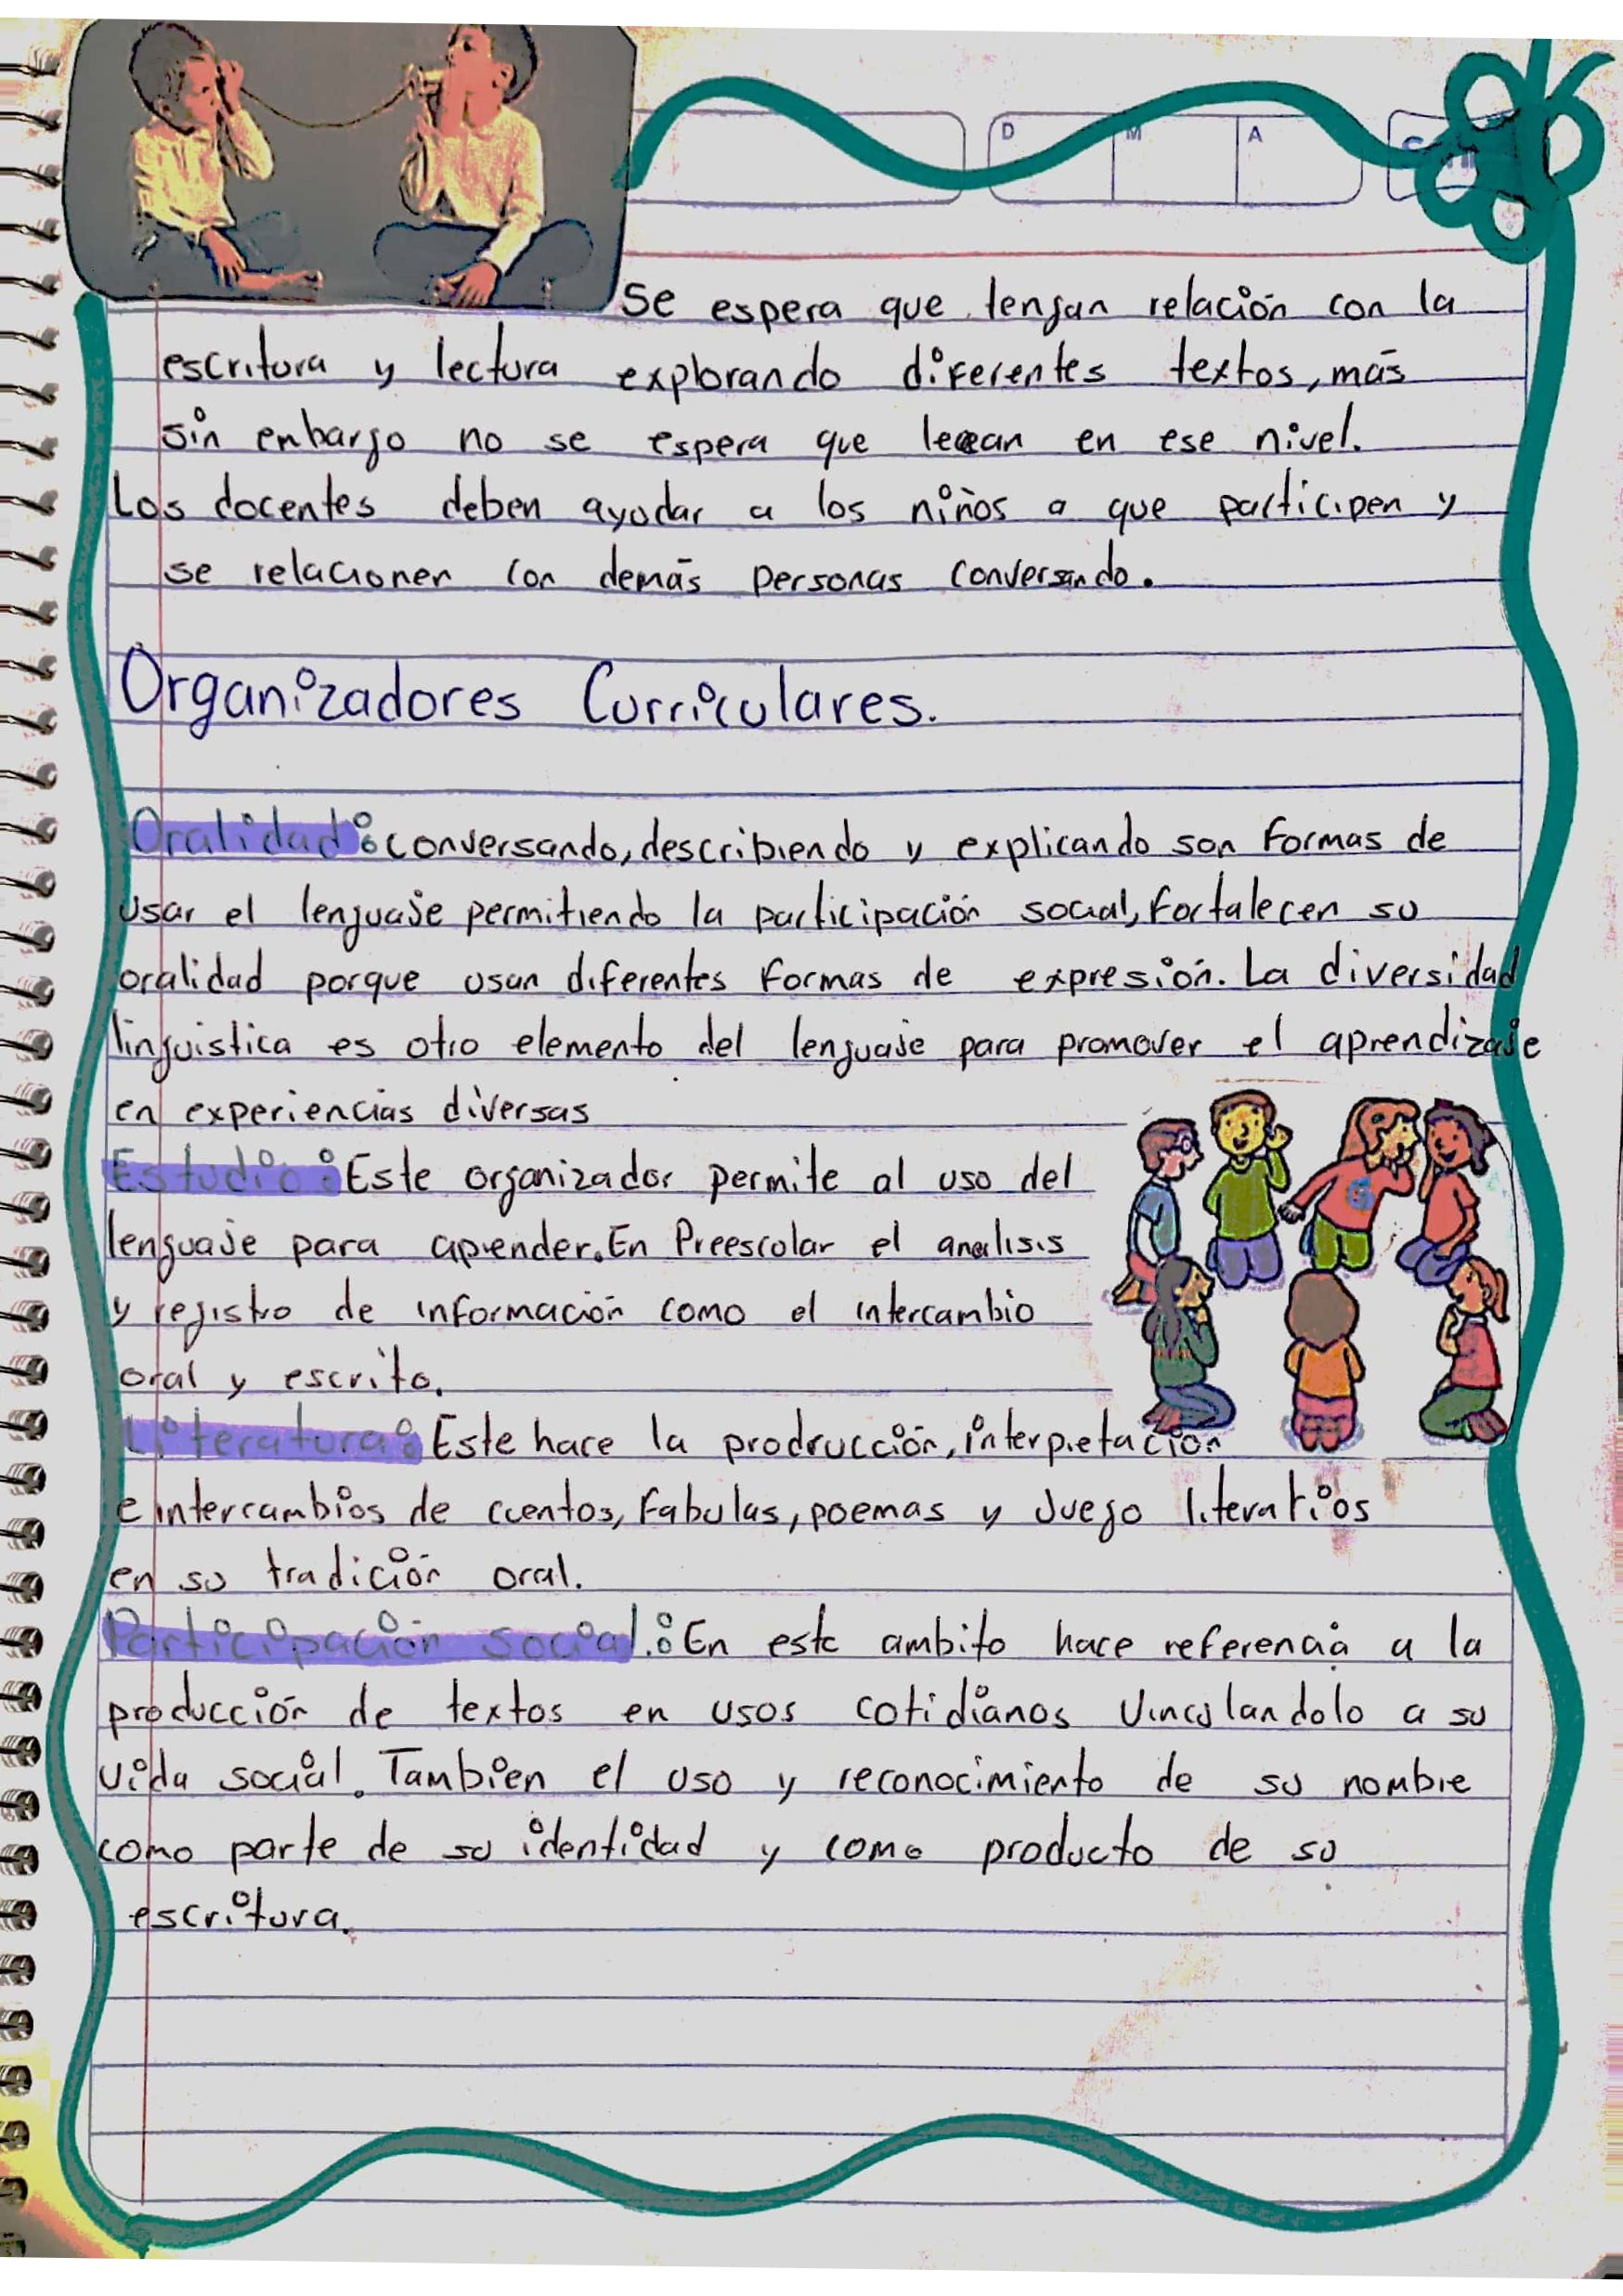 D M A
Se espera que tengan relación con la
escritura y lectura explorando diferentes textos, más
sin enbargo no se espera que leean en ese nivel.
Los docentes deben ayudar a los niños a que participen y
se relacionen con demás personas conversando.
Organizadores Curriculares.
Oralidad: conversando, describiendo y explicando son formas de
usar el lenguaje permitiendo la participación social, fortalecen su
oralidad porque usan diferentes formas de expresión. La diversidad
linguistica es otro elemento del lenguaje para promover el aprendizaje
en experiencias diversas
Estudio: Este organizador permite al uso del
lenguaje para aprender. En Preescolar el analisis
y registro de información como el intercambio
oral y escrito.
Literatura: Este hace la prodrucción, interpretación
e intercambios de cuentos, fabulas, poemas y Juego literatios
en su tradición oral.
Participación social.: En este ambito hace referencia a la
producción de textos en usos cotidianos vinculandolo a su
vida social. Tambien el uso y reconocimiento de su nombre
como parte de su identidad y como producto de su
escritura.